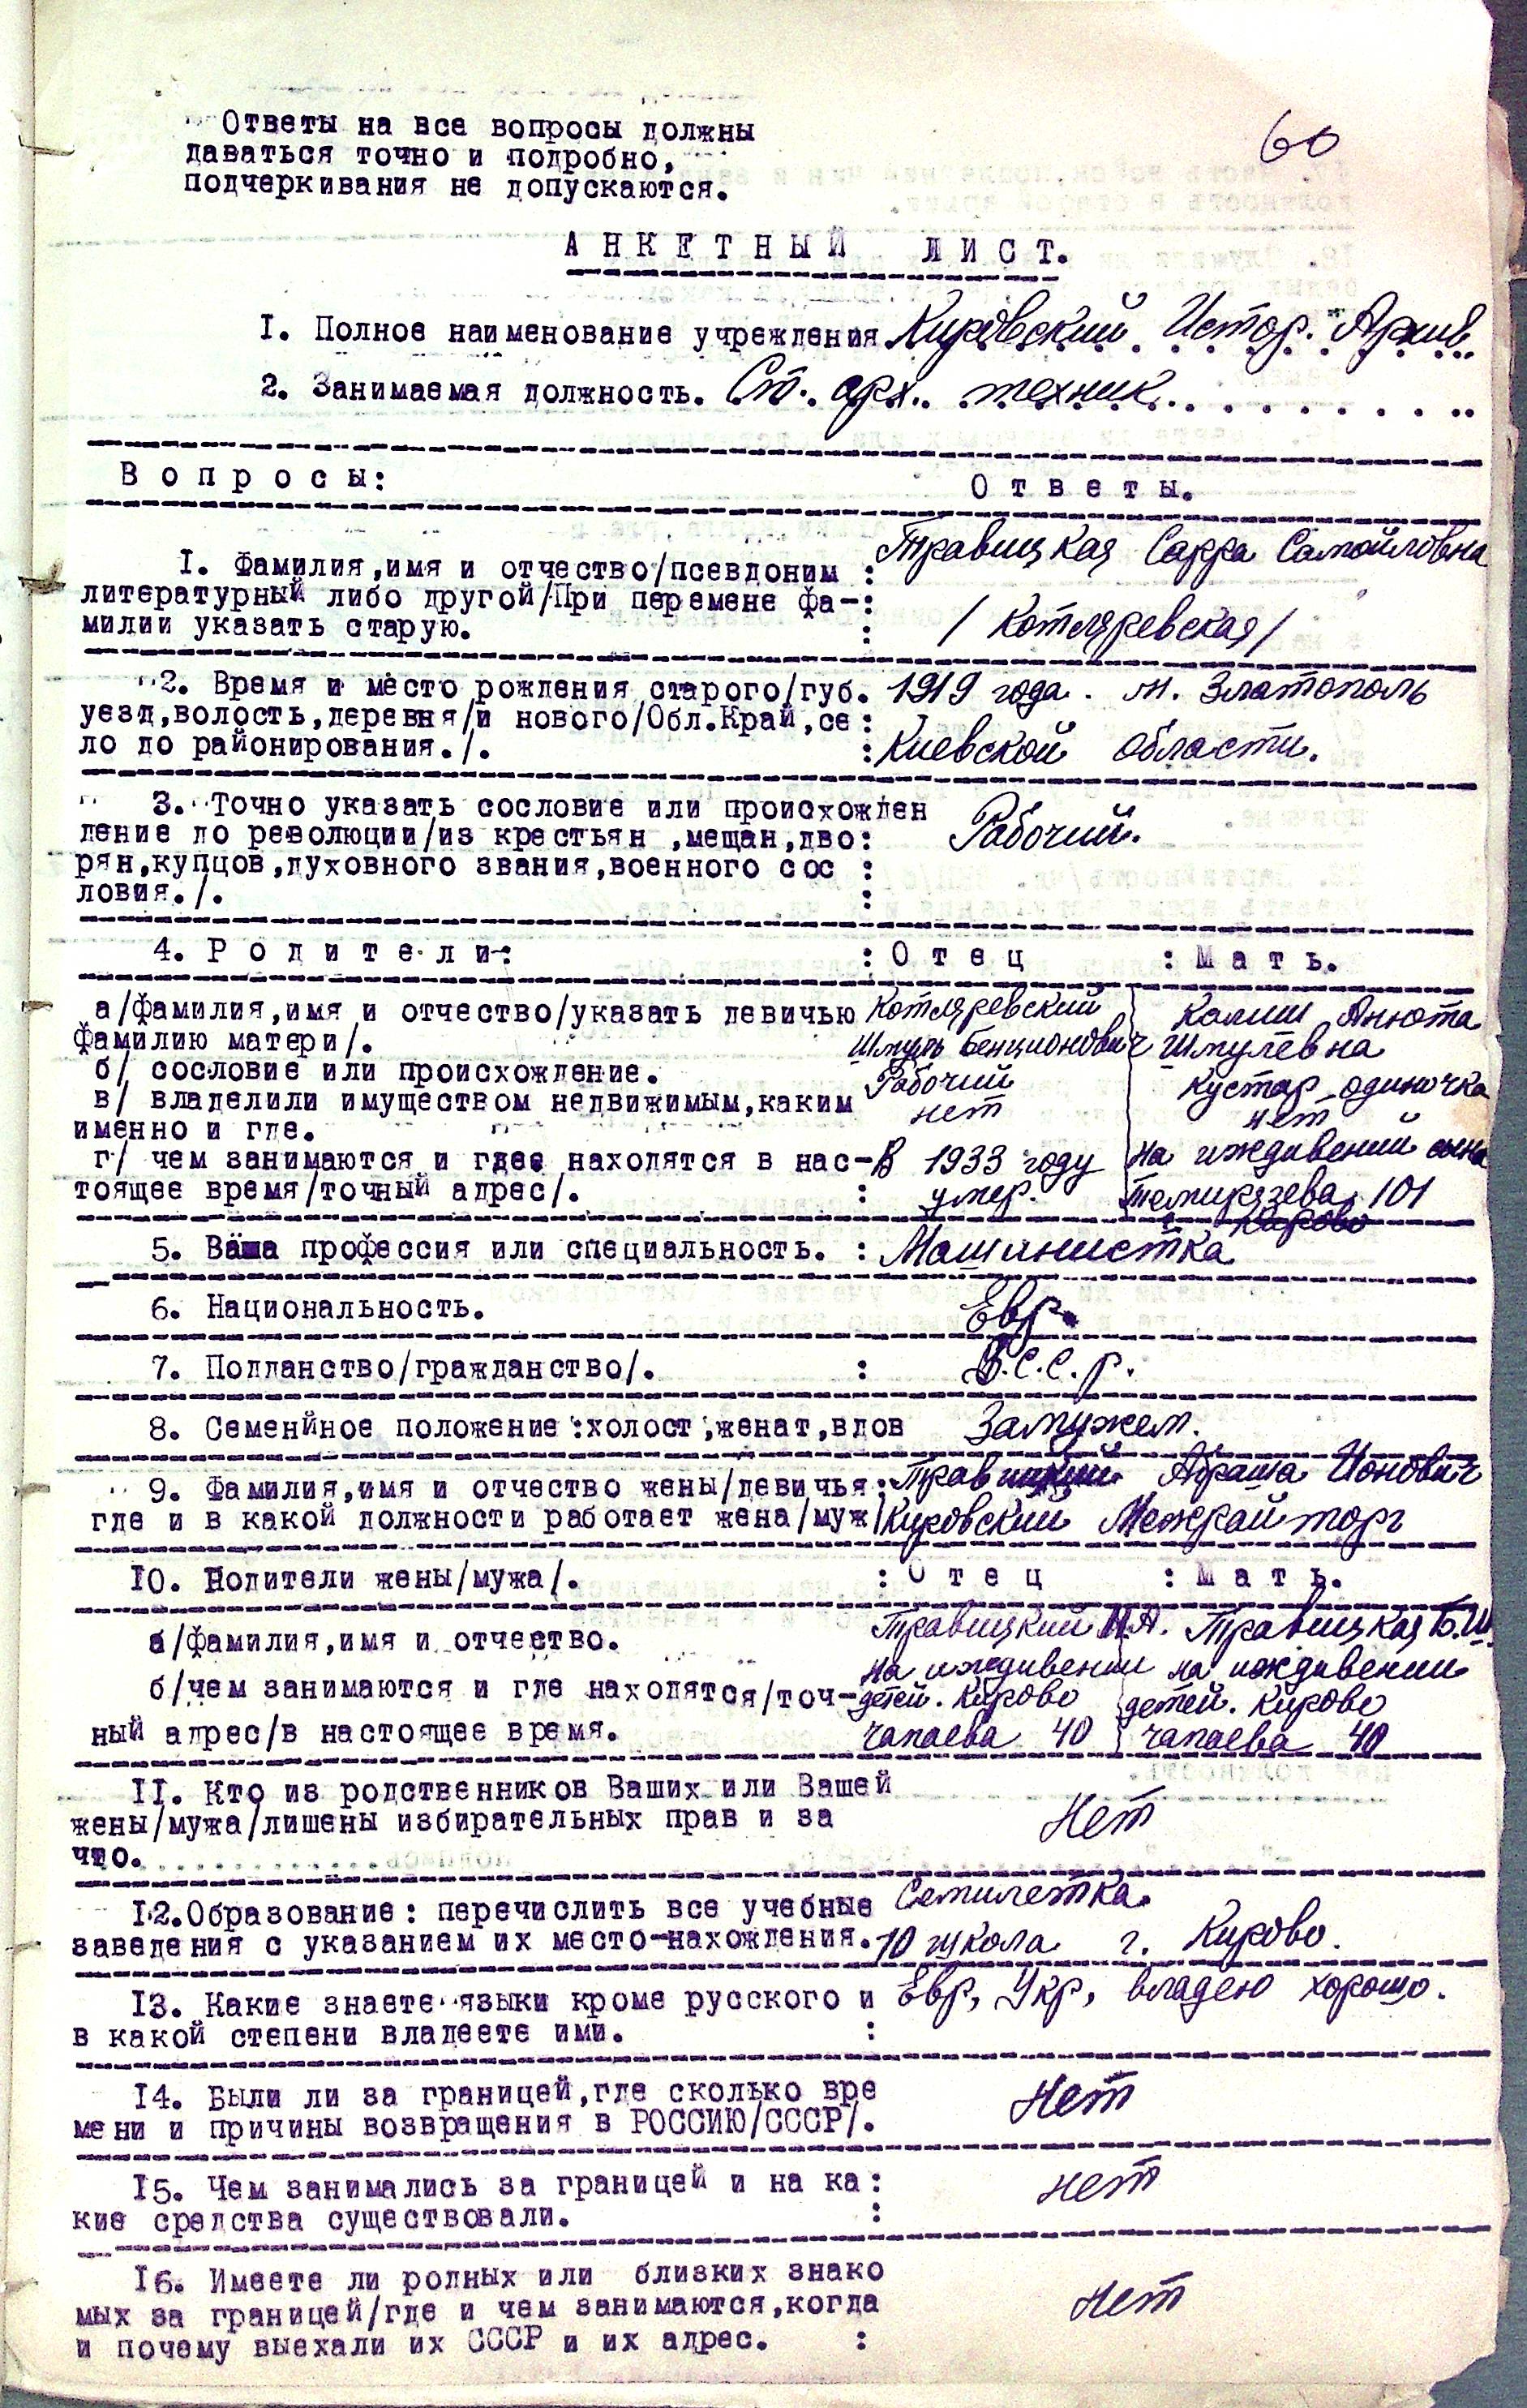 60
Ответы на все вопросы должны
даваться точно и подробно,
подчеркивания не допускаются.
АНКЕТНЫЙ ЛИСТ.
I. Полное наименование учреждения Кировский Истор. Архив
2. Занимаемая должность. Ст. арх. техник
Вопросы: Ответы.
I. Фамилия,имя и отчество/псевдоним : Травицкая Сарра Самойловна
литературный либо другой/При перемене фа-:
милии указать старую. : / Котляревская/
2. Время и место рождения старого/губ. 1919 года. м. Златополь
уезд,волость,деревня/и нового/Обл.Край,се:
ло до районирования./. : Киевской области.
3. Точно указать сословие или происхожден
дение до революции/из крестьян ,мещан,дво: Рабочий.
рян,купцов,духовного звания,военного сос :
ловия./. :
4. Родители: : Отец : Мать.
а/фамилия,имя и отчество/указать девичью Котляревский Калиш Анюта
фамилию матери/. Шмуль Бенционович Шмулевна
б/ сословие или происхождение. Рабочий Кустар одиночка
в/ владелили имуществом недвижимым,каким нет нет
именно и где.
г/ чем занимаются и гдее находятся в нас- В 1933 году На иждивении сына
тоящее время/точный адрес/. : умер. Темирязева 101
Кирово
5. Ваша профессия или специальность. : Машинистка
6. Национальность. Евр.
7. Подданство/гражданство/. : С.С.С.р.
8. Семенйное положение :холост,женат,вдов Замужем.
9. Фамилия,имя и отчество жены/девичья: Травицкий Абраша Ионович
где и в какой должности работает жена/муж/ Кировский Межрайторг
10. Водители жены/мужа/. : Отец : Мать.
а/фамилия,имя и отчество. Травицкий И.А. Травицкая Б.Ш.
на иждивении на иждивении
б/чем занимаются и где находятся/точ- детей. Кирово детей. Кирово
ный адрес/в настоящее время. Чапаева 40 Чапаева 40
II. Кто из родственников Ваших или Вашей
жены/мужа/лишены избирательных прав и за Нет
что.
12.Образование: перечислить все учебные Семилетка.
заведения с указанием их место-нахождения. 10 школа г. Кирово.
13. Какие знаете языки кроме русского и Евр, Укр, владею хорошо.
в какой степени владеете ими. :
14. Были ли за границей,где сколько вре Нет
мени и причины возвращения в РОССИЮ/СССР/.
15. Чем занимались за границей и на ка: нет
кие средства существовали. :
16. Имеете ли родных или близких знако
мых за границей/где и чем занимаются,когда нет
и почему выехали их СССР и их адрес. :